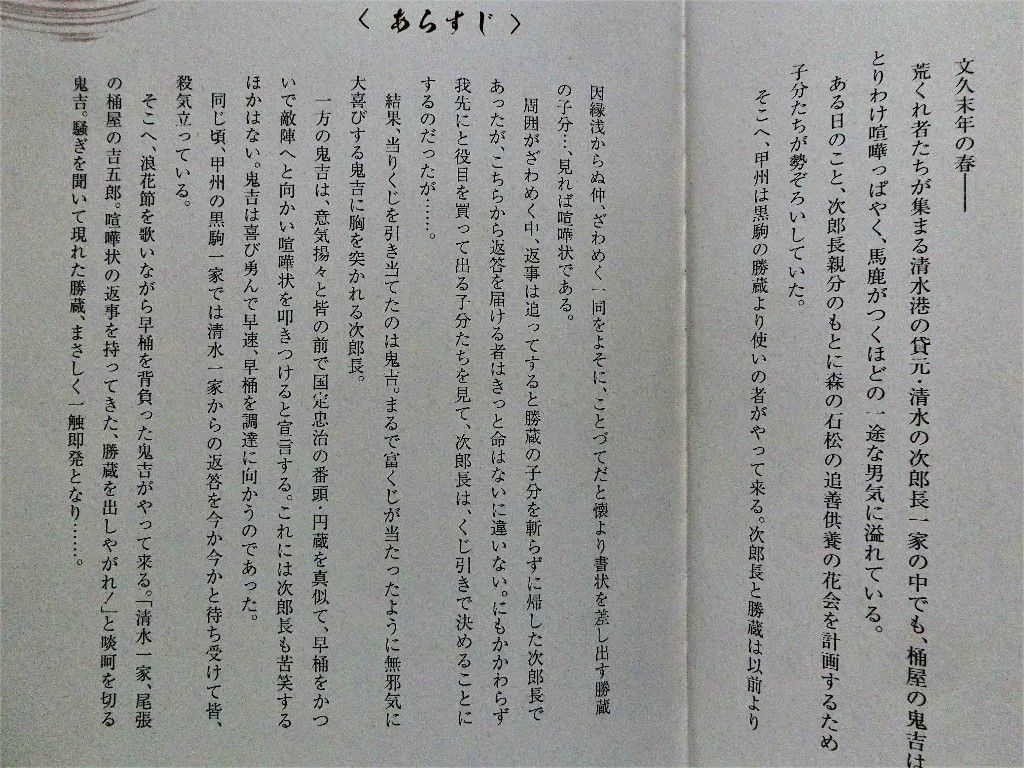 〈あらすじ〉
文久末年の春――
荒くれ者たちが集まる清水港の貸元・清水の次郎長一家の中でも、桶屋の鬼吉は
とりわけ喧嘩っぱやく、馬鹿がつくほどの一途な男気に溢れている。
ある日のこと、次郎長親分のもとに森の石松の追善供養の花会を計画するため
子分たちが勢ぞろいしていた。
そこへ、甲州は黒駒の勝蔵より使いの者がやって来る。次郎長と勝蔵は以前より
因縁浅からぬ仲、ざわめく一同をよそに、ことづてだと懐より書状を差し出す勝蔵
の子分…、見れば喧嘩状である。
周囲がざわめく中、返事は追ってすると勝蔵の子分を斬らずに帰した次郎長で
あったが、こちらから返答を届ける者はきっと命はないに違いない。にもかかわらず
我先にと役目を買って出る子分たちを見て、次郎長は、くじ引きで決めることに
するのだったが……。
結果、当りくじを引き当てたのは鬼吉。まるで富くじが当たったように無邪気に
大喜びする鬼吉に胸を突かれる次郎長。
一方の鬼吉は、意気揚々と皆の前で国定忠治の番頭・円蔵を真似て、早桶をかつ
いで敵陣へと向かい喧嘩状を叩きつけると宣言する。これには次郎長も苦笑する
ほかはない。鬼吉は喜び勇んで早速、早桶を調達に向かうのであった。
同じ頃、甲州の黒駒一家では清水一家からの返答を今か今かと待ち受けて皆、
殺気立っている。
そこへ、浪花節を歌いながら早桶を背負った鬼吉がやって来る。「清水一家、尾張
の桶屋の吉五郎。喧嘩状の返事を持ってきた、勝蔵を出しやがれ!」と啖呵を切る
鬼吉。騒ぎを聞いて現れた勝蔵、まさしく一触即発となり……。